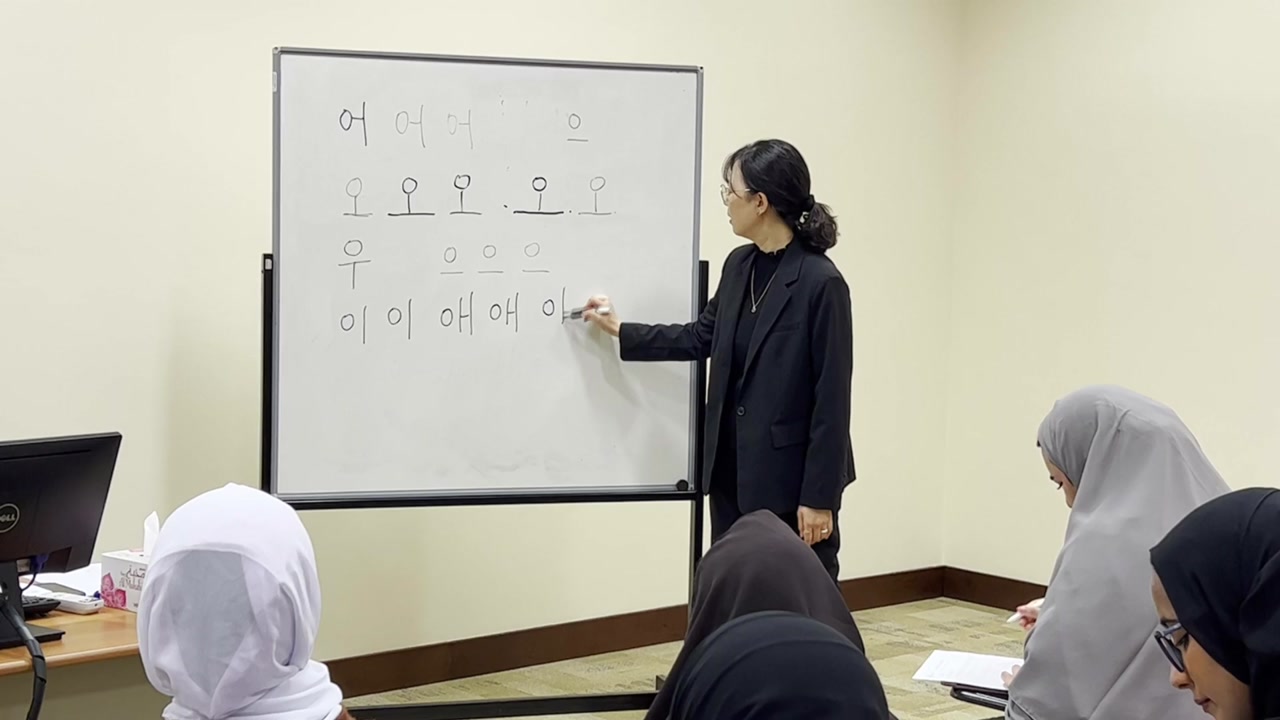 어 어 어 으
오 오 오 오 오
우 으 으 으
이 이 애 애 이
DELL